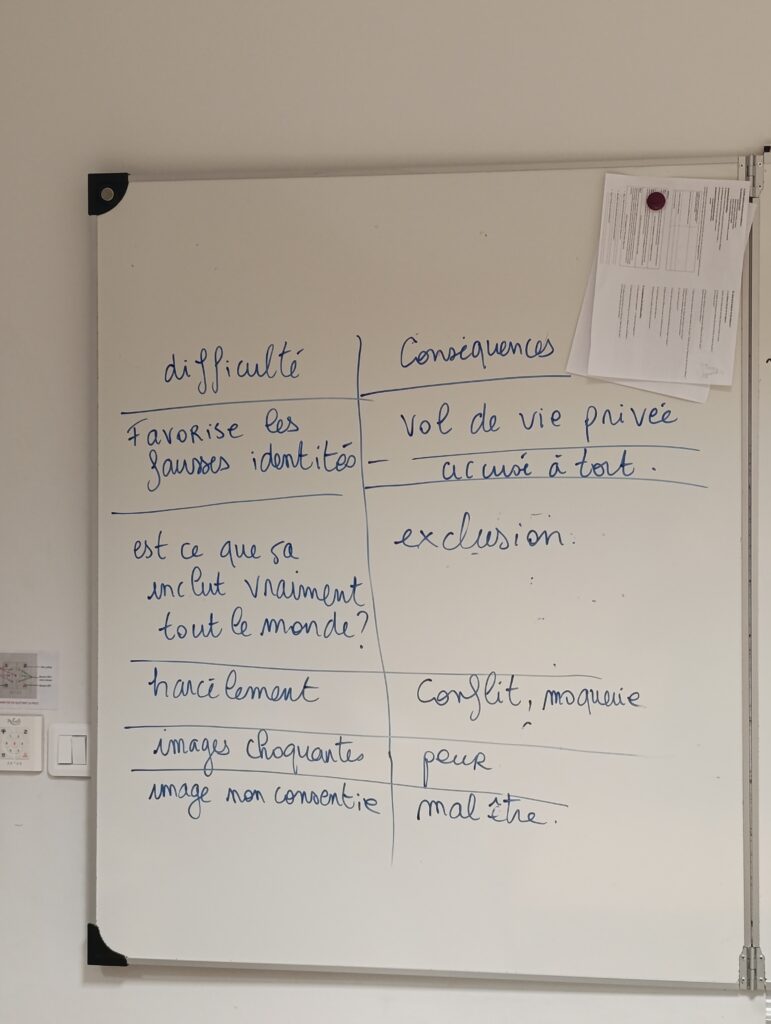 difficulté
Conséquences
Favorise les
fausses identités
vol de vie privée
accusé à tort.
est ce que ça
inclut vraiment
tout le monde?
exclusion.
harcèlement
Conflit, moquerie
images choquantes
peur
image non consentie
mal être.